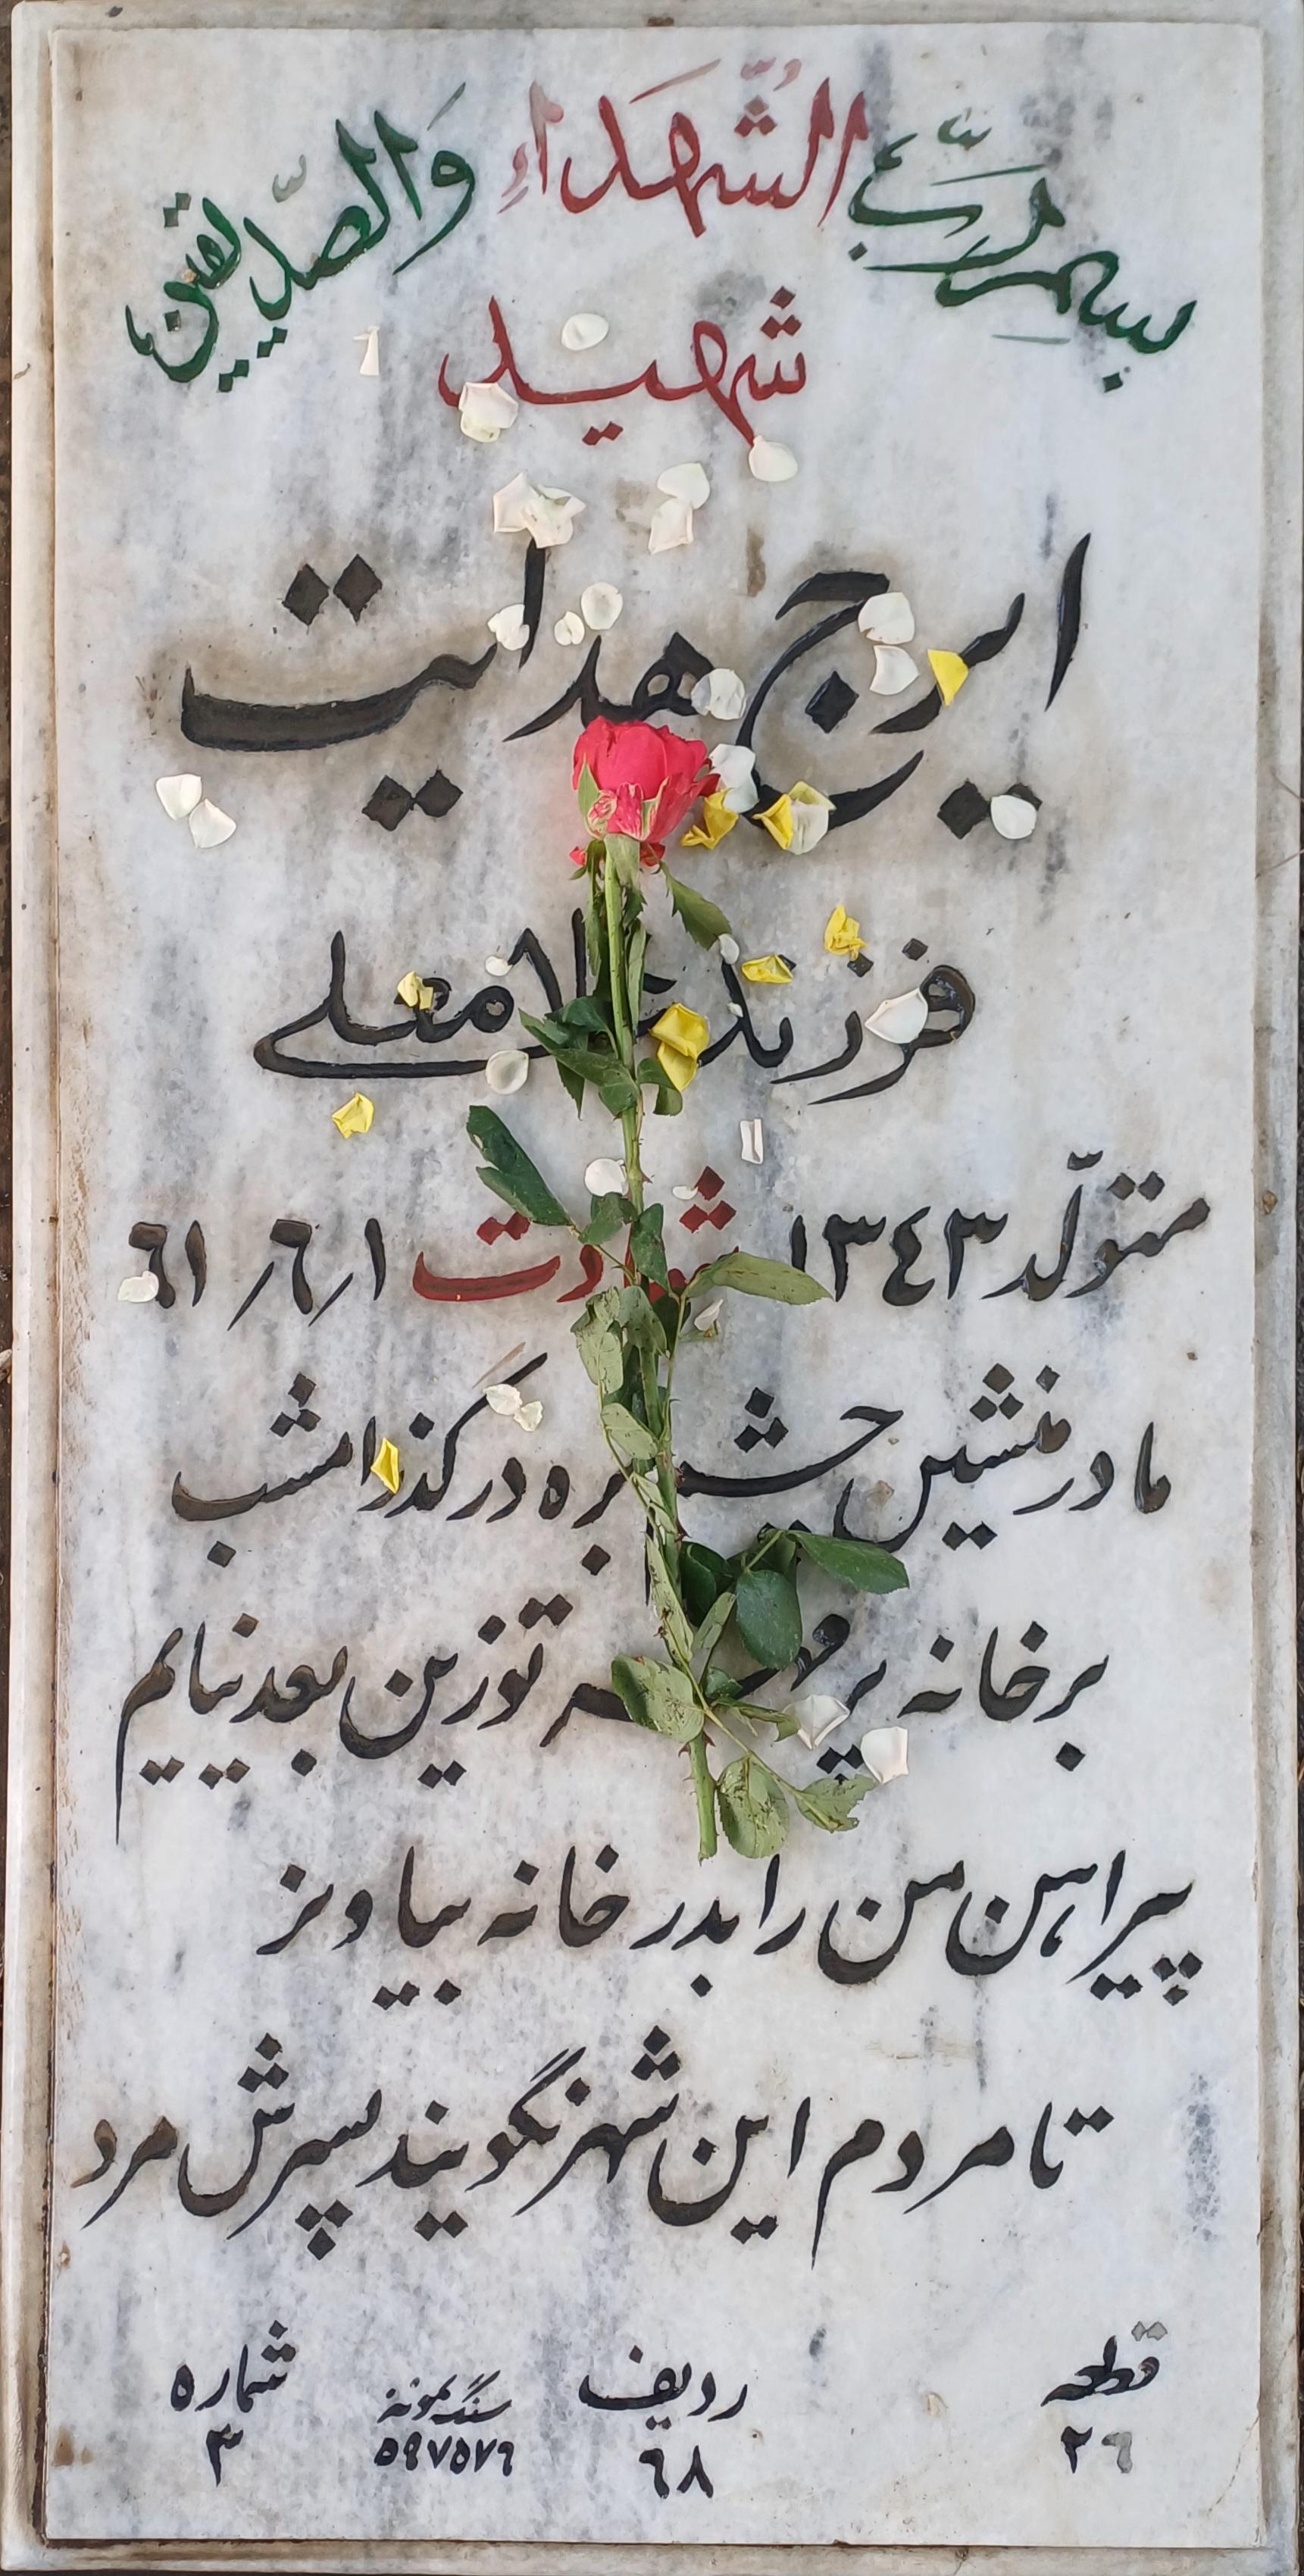 بسم ربّ الشّهداءِ وَالصّدیقین
شهید
ایرج هدایت
فرزند غلامعلی
متولّد ۱۳٤۳ شهادت ۱/٦/٦۱
مادر منشین چشم بره در گذر امشب
بر خانه پر مهر تو زین بعد نیایم
پیراهن من را بدر خانه بیاویز
تا مردم این شهر نگویند پسرش مرد
قطعه ردیف سنگ نمونه شماره
۲٦ ٦۸ ۵۹۷۵۷۹ ۳